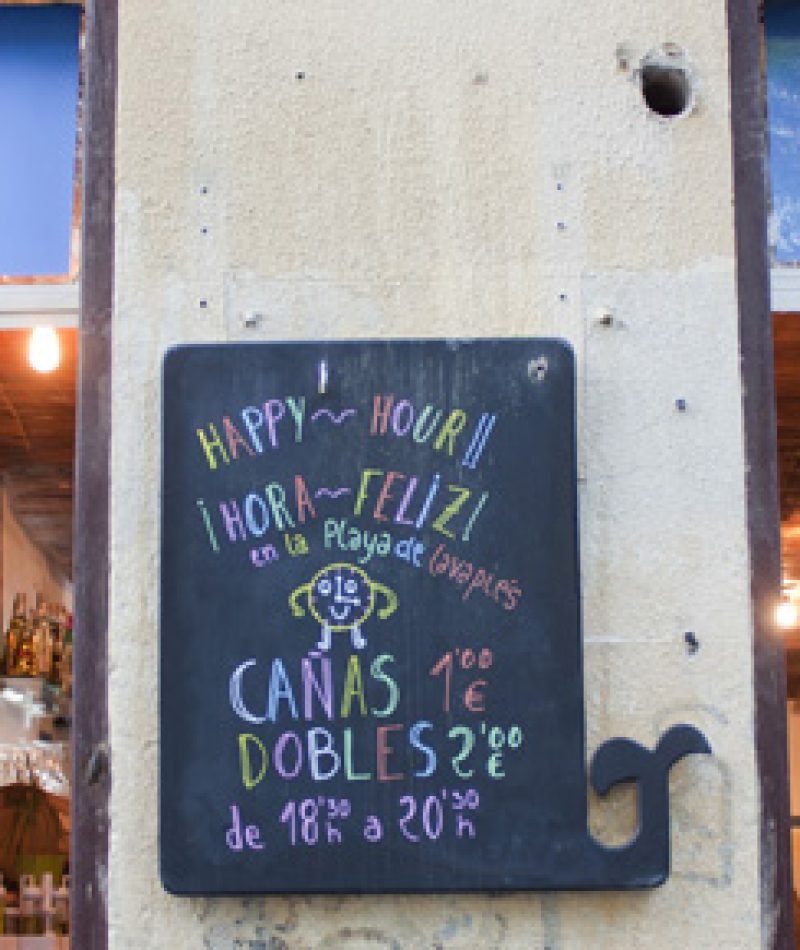 HAPPY~ HOUR!!
¡HORA~FELIZ!
en la Playa de lavapiés
CAÑAS 1'00 €
DOBLES 2'00 €
de 18'30 h a 20'30 h